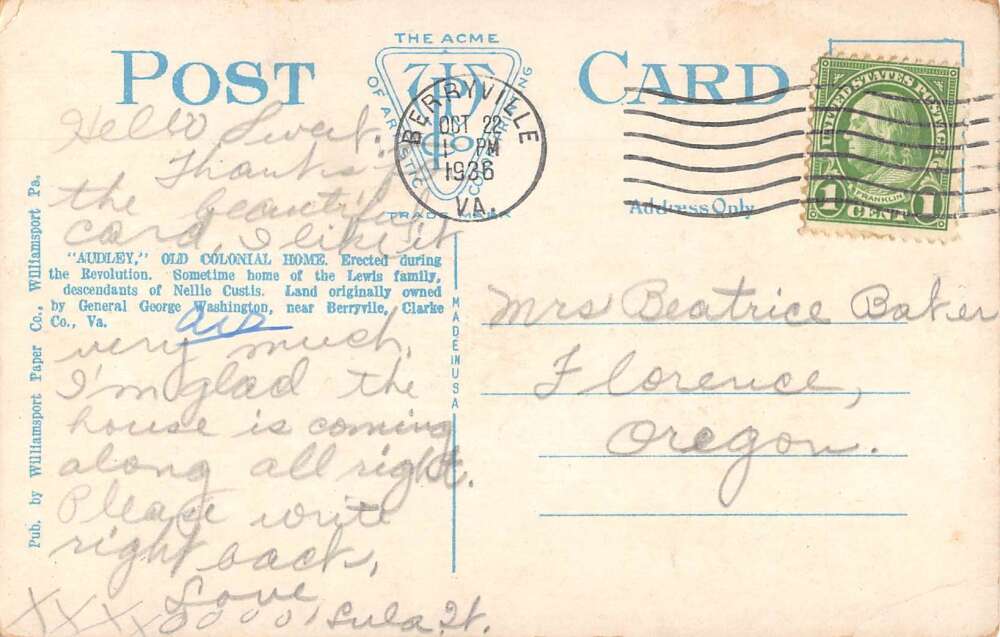 THE ACME
POST CARD
OF ARTISTIC
TRADE MARK
BERRYVILLE
OCT 22
1 PM
1936
VA.
UNITED STATES POSTAGE
FRANKLIN
1 CENT 1
Address Only
Hello Sweet.
Thanks
the beautiful
card, I like it
"AUDLEY," OLD COLONIAL HOME. Erected during
the Revolution. Sometime home of the Lewis family,
descendants of Nellie Custis. Land originally owned
by General George Washington, near Berryvile, Clarke
Co., Va.
very much,
I'm glad the
house is coming
along all right.
Please write
right back,
Love
XXXX0000, Lula
Pub. by Williamsport Paper Co., Williamsport Pa.
MADE IN USA
Mrs Beatrice Baker
Florence,
Oregon.